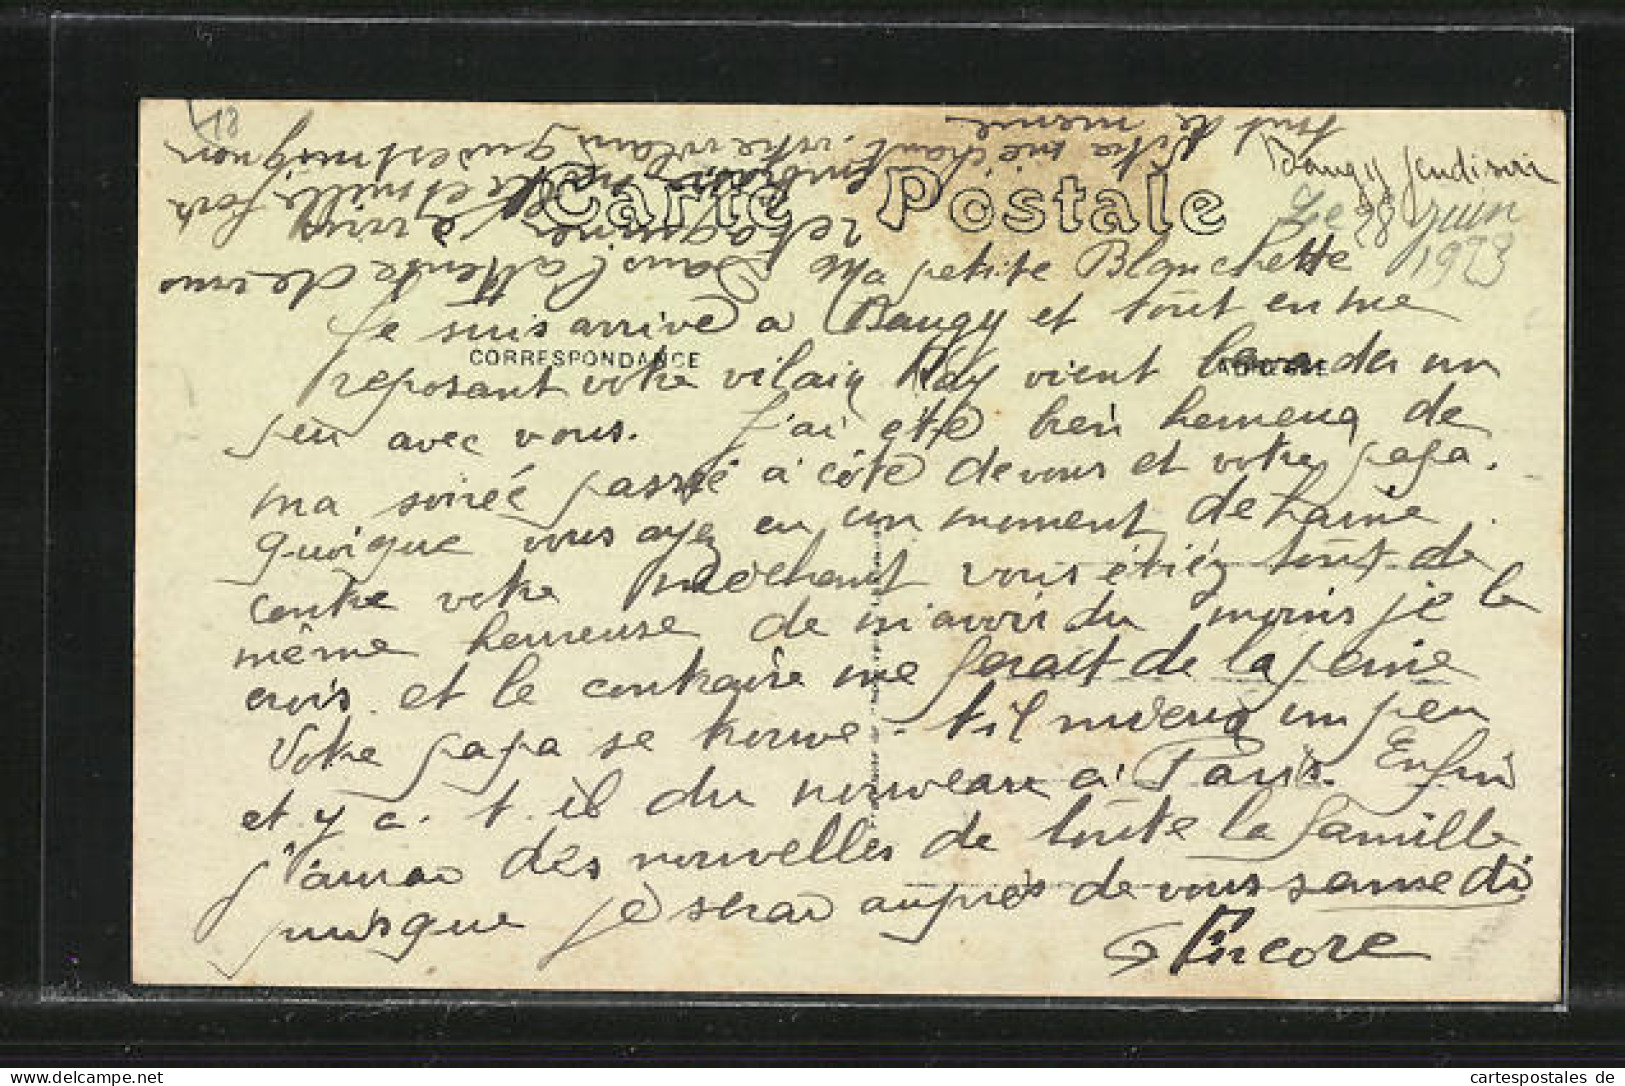 18
Baugy Jeudi soir
Le 28 juin
1923
Carte Postale
CORRESPONDANCE
Ma petite Blanchette
Je suis arrivé à Baugy et tout en me
reposant votre vilain vient un
peu avec vous. J'ai été bien heureux de
ma soirée passée à côté de vous et votre papa.
quoique vous ayez eu un moment de haine
contre votre méchant vous étiez tout de
même heureuse de m'avoir du moins je le
crois. et le contraire me ferait de la peine
Votre papa se trouve-t-il mieux un peu
et y a-t-il du nouveau à Paris. Enfin
j'aurai des nouvelles de toute la famille
puisque je serai auprès de vous samedi
Encore
Dans l'attente de vous
revoir mille et mille fois
votre vilain qui est mignon
Votre méchant
tout de même
cartespostales de